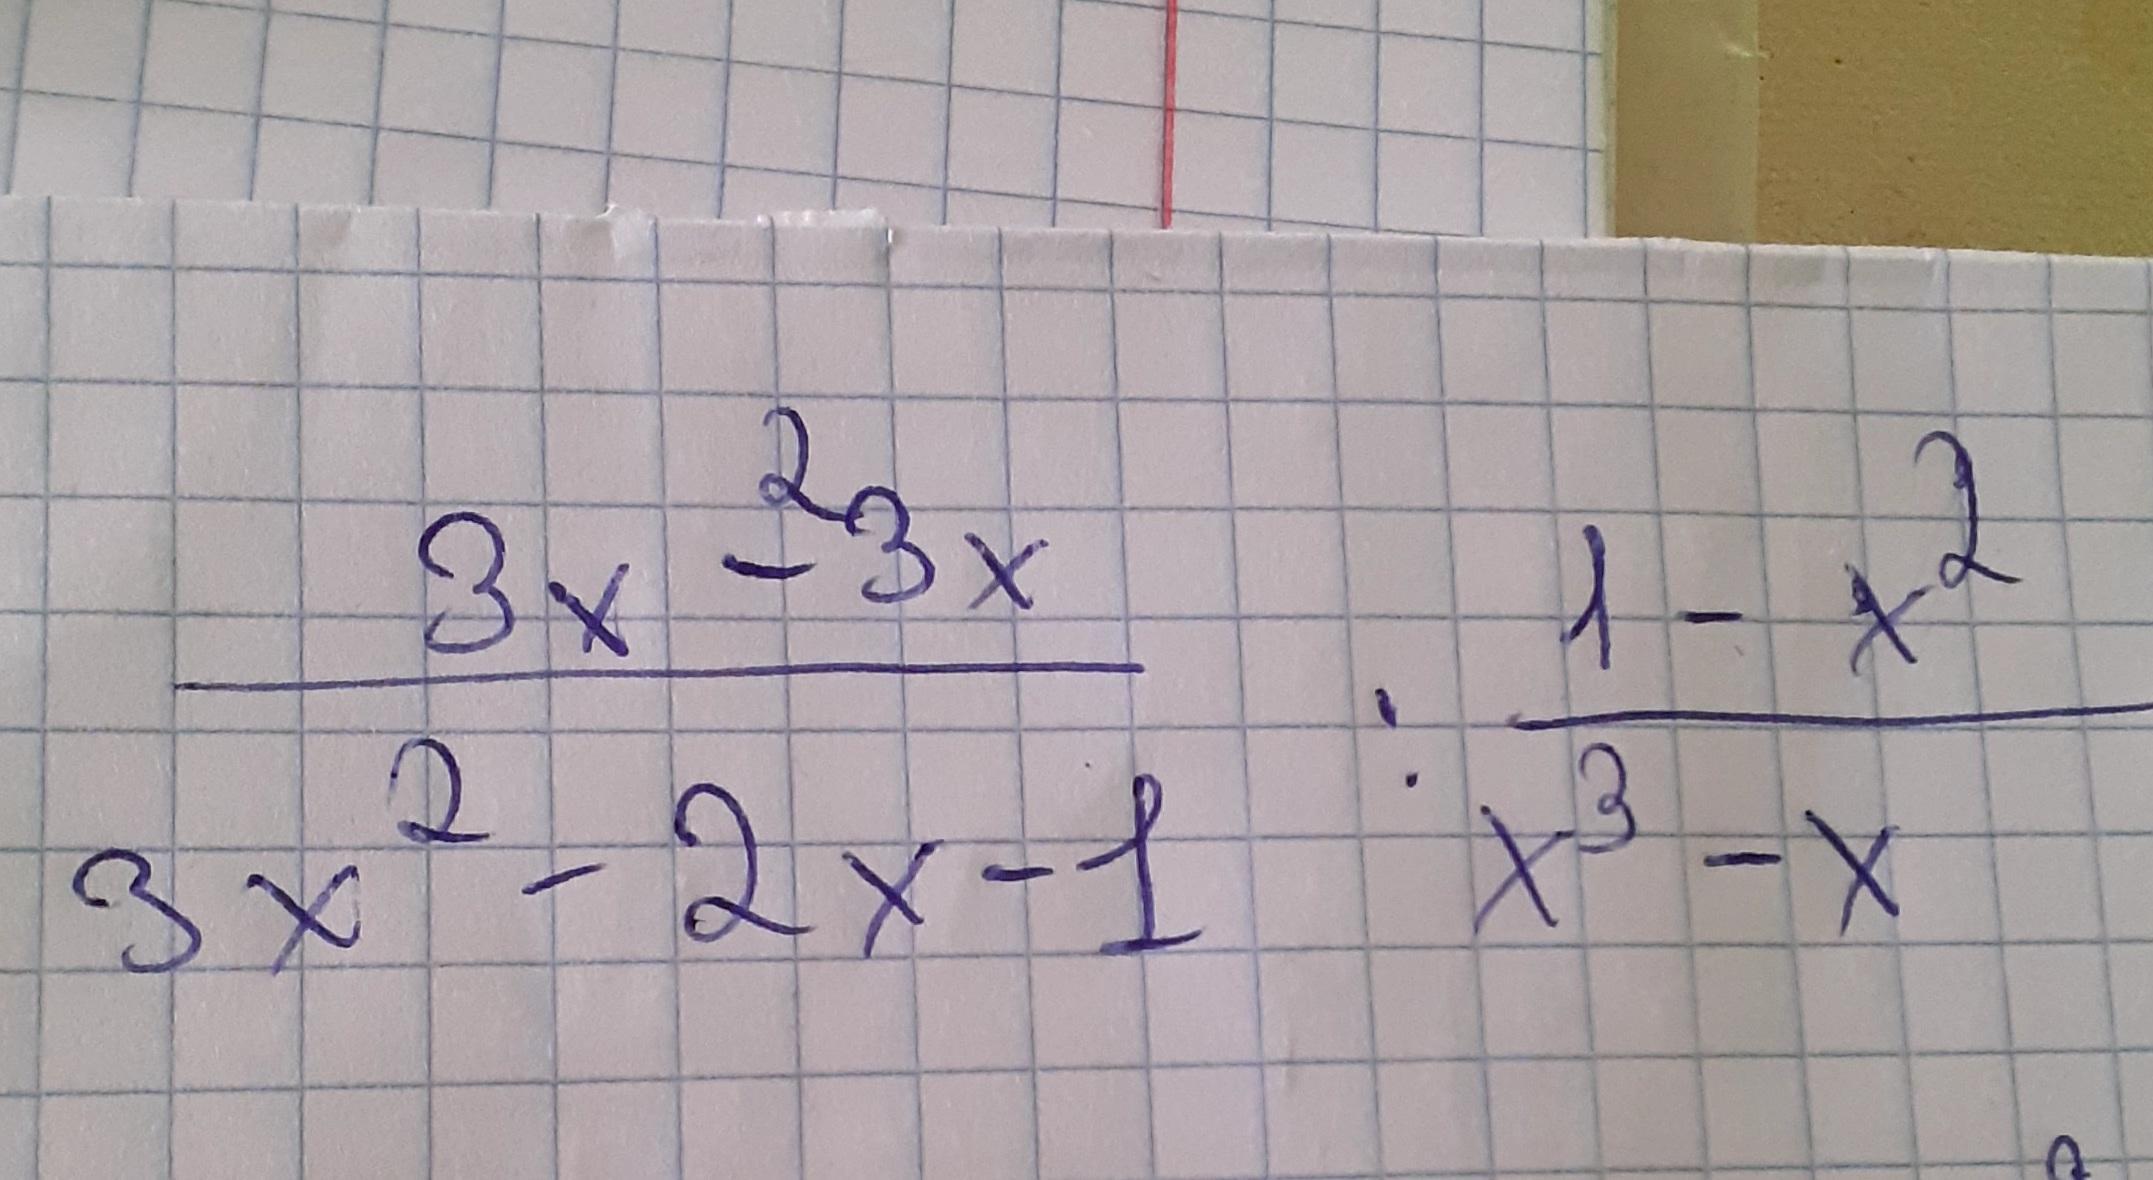 3x² - 3x / 3x² - 2x - 1 : 1 - x² / x³ - x